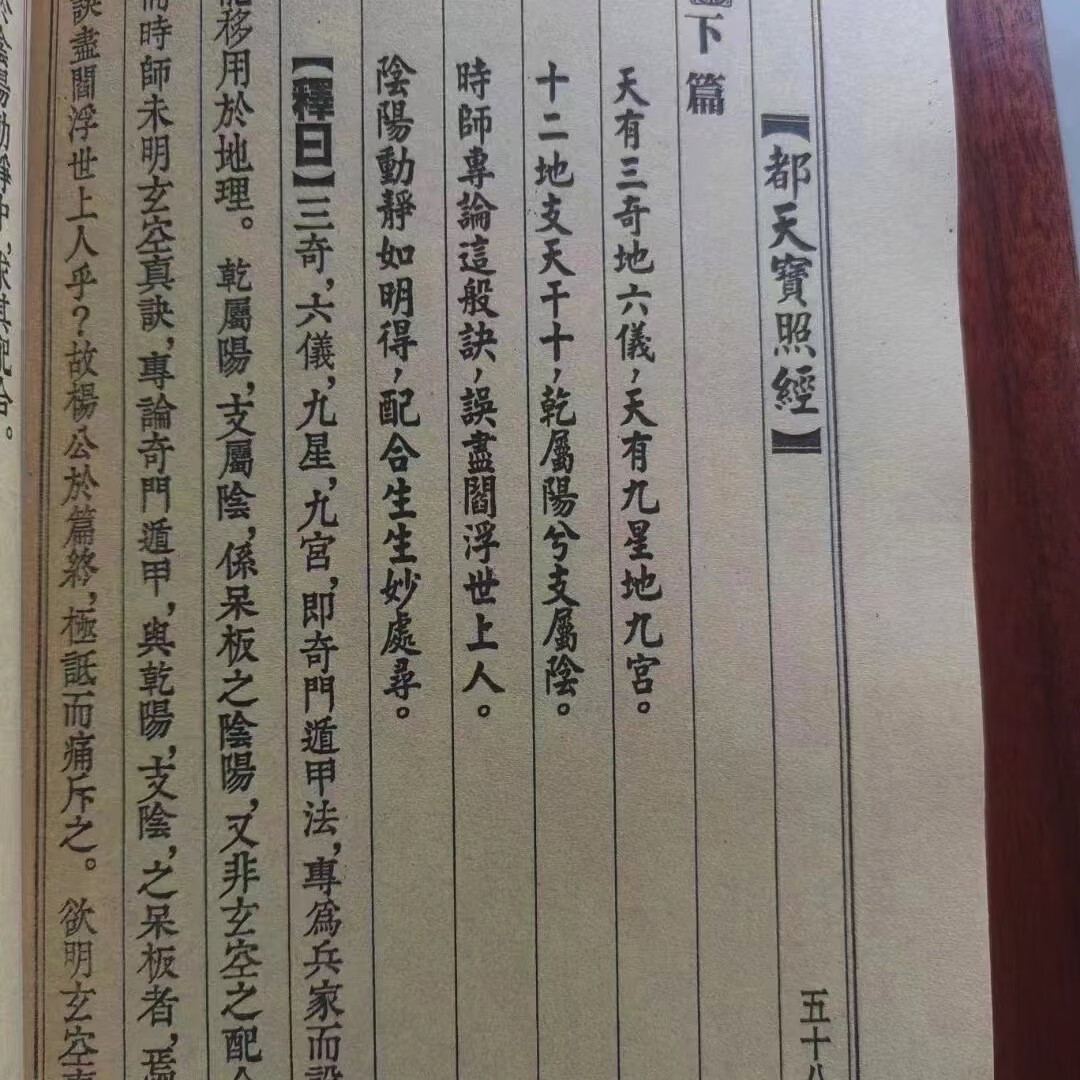 【都天寶照經】
五十八
下篇
天有三奇地六儀，天有九星地九宮。
十二地支天干十，乾屬陽兮支屬陰。
時師專論這般訣，誤盡閻浮世上人。
陰陽動靜如明得，配合生生妙處尋。
【釋曰】三奇，六儀，九星，九宮，即奇門遁甲法，專爲兵家而設
能移用於地理。乾屬陽，支屬陰，係呆板之陰陽，又非玄空之配合
時師未明玄空真訣，專論奇門遁甲，與乾陽，支陰，之呆板者，焉
訣盡閻浮世上人乎？故楊公於篇終，極詆而痛斥之。欲明玄空真
陰陽動靜中，求其配合。